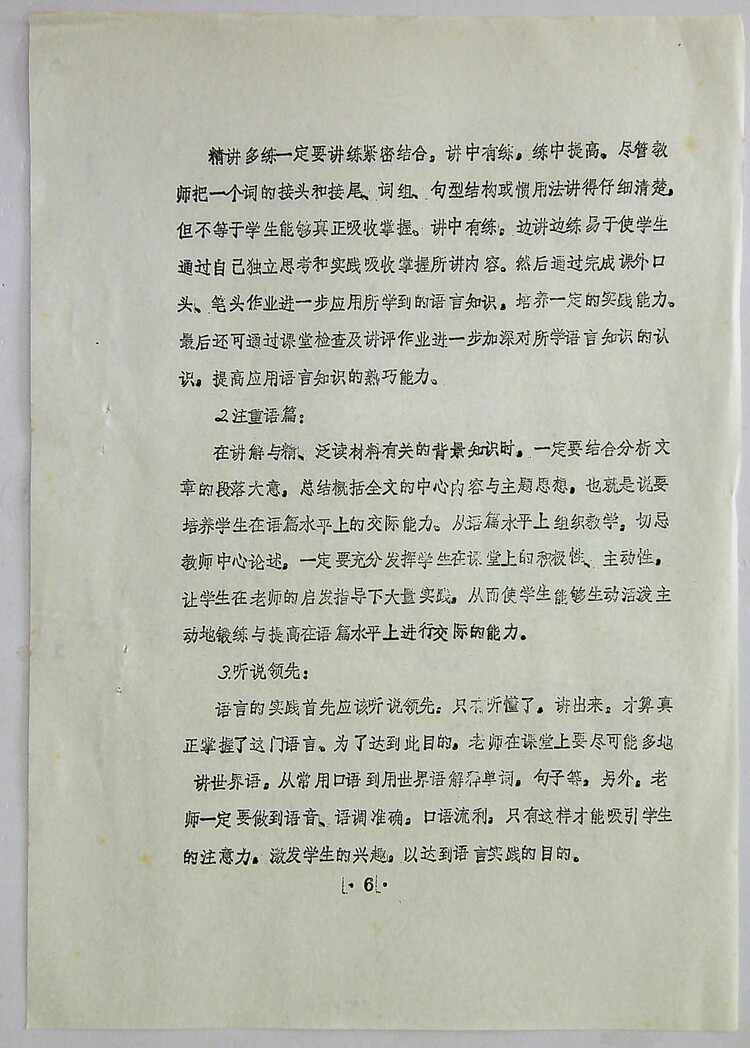 精讲多练一定要讲练紧密结合，讲中有练，练中提高。尽管教
师把一个词的接头和接尾、词组、句型结构或惯用法讲得仔细清楚，
但不等于学生能够真正吸收掌握。讲中有练，边讲边练易于使学生
通过自己独立思考和实践吸收掌握所讲内容。然后通过完成课外口
头、笔头作业进一步应用所学到的语言知识，培养一定的实践能力。
最后还可通过课堂检查及讲评作业进一步加深对所学语言知识的认
识，提高应用语言知识的熟巧能力。
2.注重语篇：
在讲解与精、泛读材料有关的背景知识时，一定要结合分析文
章的段落大意，总结概括全文的中心内容与主题思想，也就是说要
培养学生在语篇水平上的交际能力。从语篇水平上组织教学，切忌
教师中心论述，一定要充分发挥学生在课堂上的积极性、主动性，
让学生在老师的启发指导下大量实践，从而使学生能够生动活泼主
动地锻练与提高在语篇水平上进行交际的能力。
3.听说领先：
语言的实践首先应该听说领先，只有听懂了，讲出来，才算真
正掌握了这门语言。为了达到此目的，老师在课堂上要尽可能多地
讲世界语，从常用口语到用世界语解释单词，句子等，另外，老
师一定要做到语音、语调准确，口语流利，只有这样才能吸引学生
的注意力，激发学生的兴趣，以达到语言实践的目的。
·6·